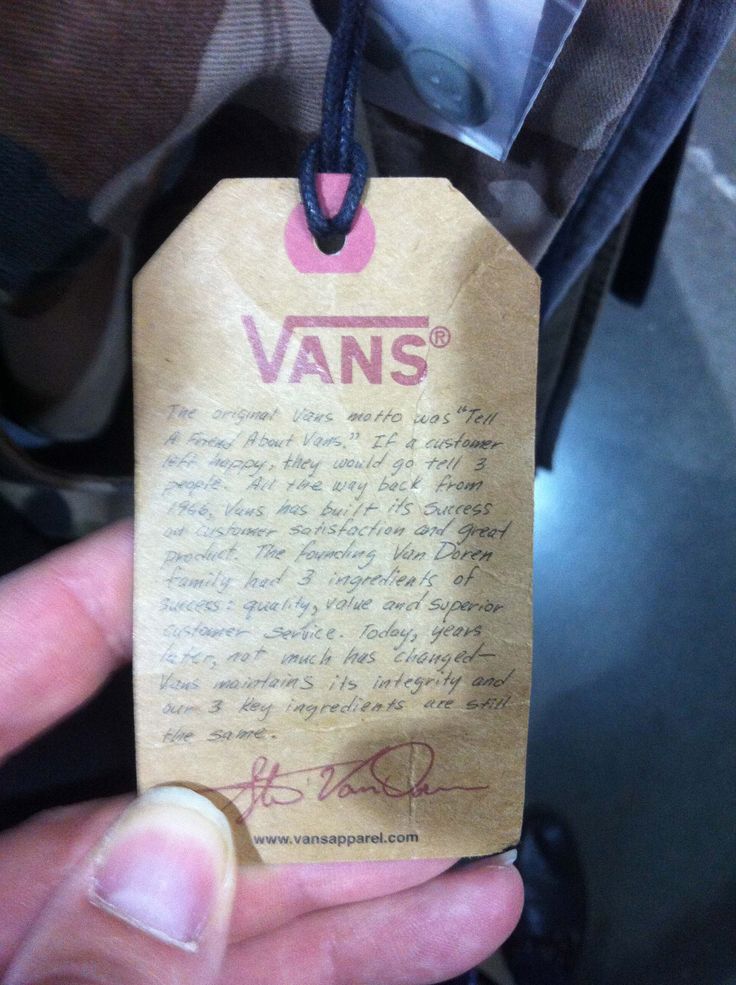 VANS®
The original Vans motto was "Tell
A Friend About Vans." If a customer
left happy, they would go tell 3
people. All the way back from
1966, Vans has built its success
on customer satisfaction and great
product. The founding Van Doren
family had 3 ingredients of
success: quality, value and superior
customer service. Today, years
later, not much has changed—
Vans maintains its integrity and
our 3 key ingredients are still
the same.
Steve Van Doren
www.vansapparel.com